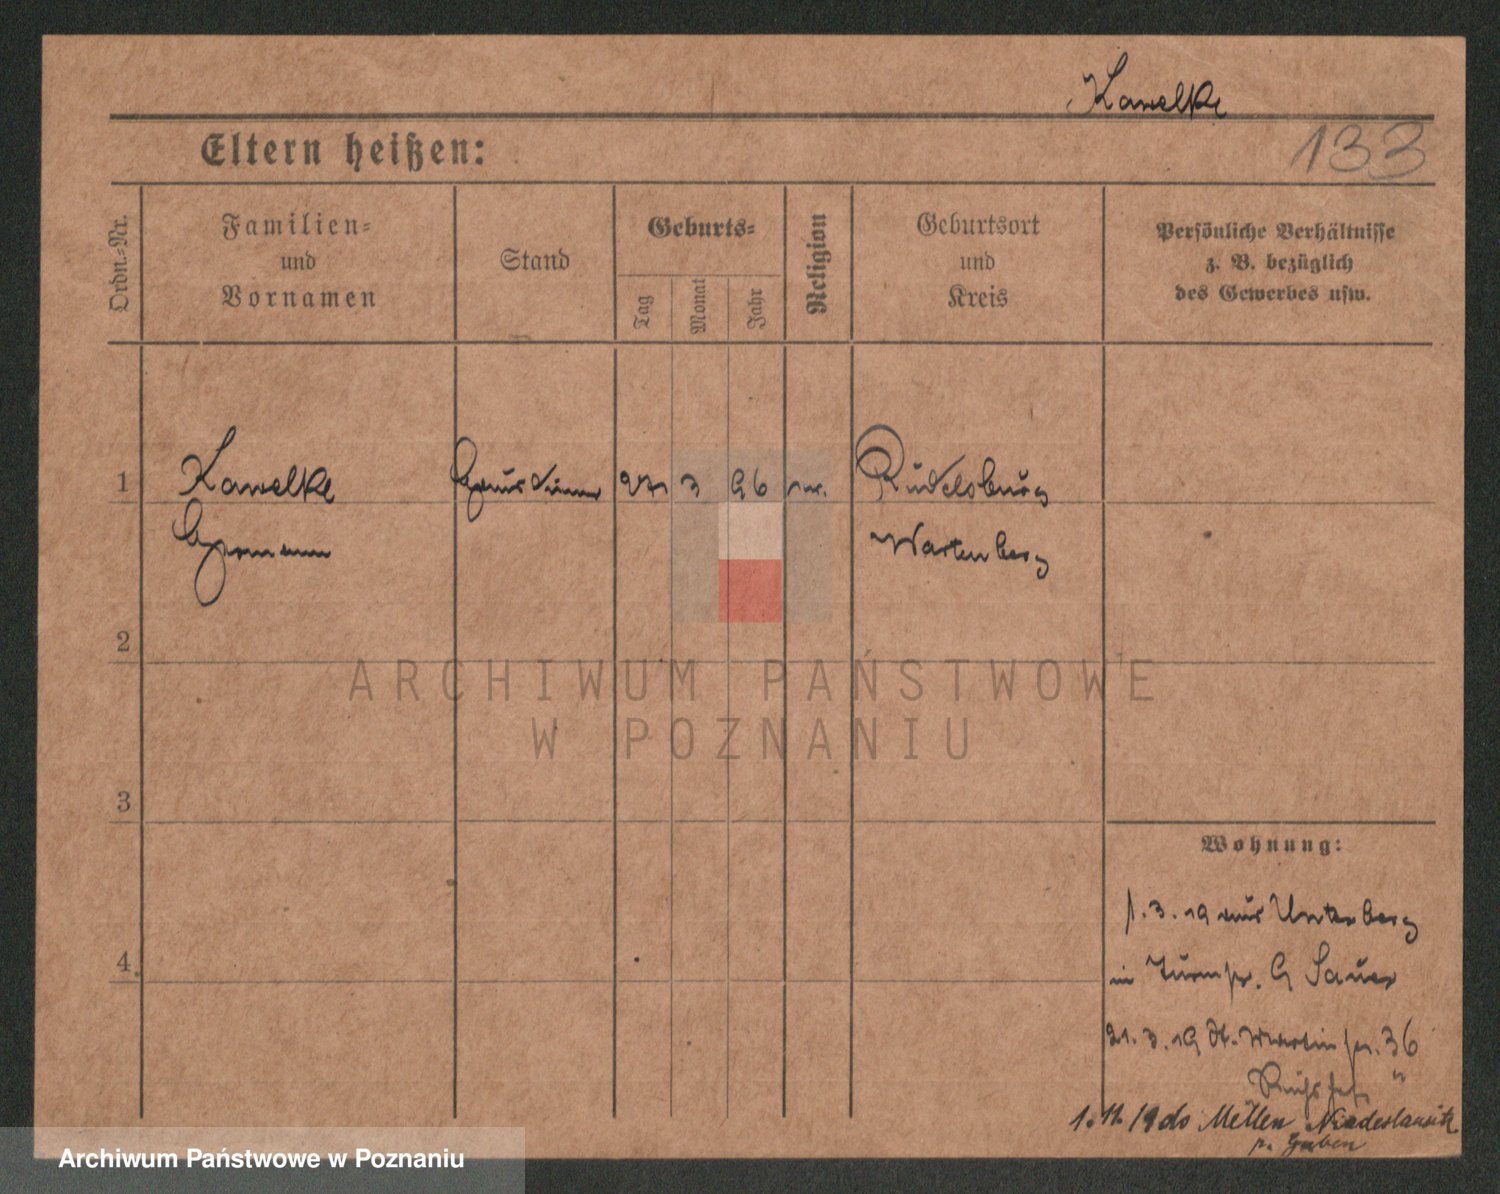 Kawelke
133
Eltern heißen:
Ordn.-Nr.
Familien-
und
Vornamen
Stand
Geburts-
Tag
Monat
Jahr
Religion
Geburtsort
und
Kreis
Persönliche Verhältnisse
z. B. bezüglich
des Gewerbes usw.
1
Kawelke
Hermann
27 3 96
Rudelsburg
Wartenberg
2
3
4
Wohnung:
1. 3. 19 aus Unterberg
in Turmstr. 9 Sauer
21. 3. 19 St. Martinstr. 36
1. 11. 19 do Mellen Niederlausitz
p. Guben
ARCHIWUM PAŃSTWOWE
W POZNANIU
Archiwum Państwowe w Poznaniu